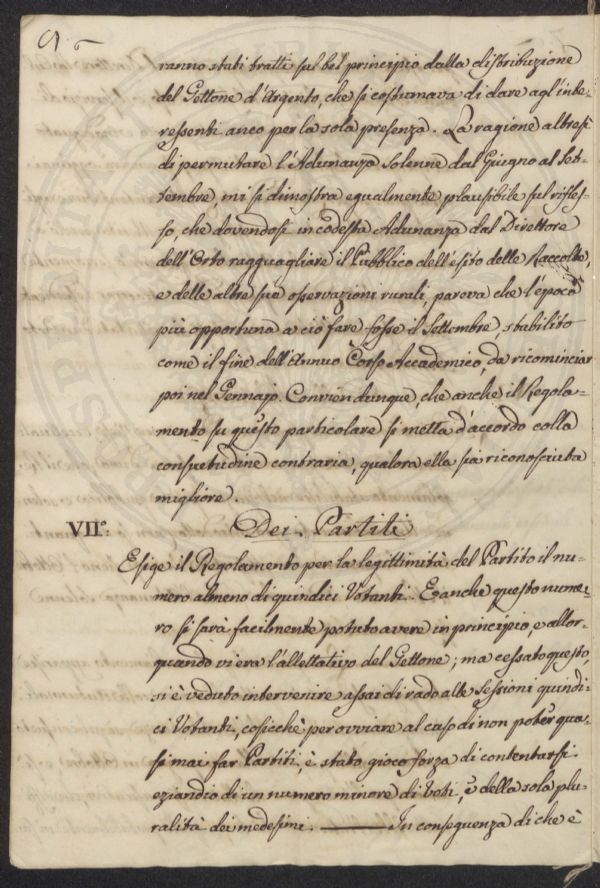 ranno stati tratti sul bel principio dalla distribuzione
del Gettone d'Argento, che si costumava di dare agl'inte-
ressenti anco per la sola presenza. La ragione altresì
di permutare l'Adunanza solenne dal Giugno al Set-
tembre, mi si dimostra egualmente plausibile sul rifles-
so, che dovendosi in codesta Adunanza dal Direttore
dell'Orto ragguagliare il Pubblico dell'esito delle Raccolte,
e delle altre sue osservazioni rurali, pareva che l'epoca
più opportuna a ciò fare fosse il Settembre, stabilito
come il fine dell'Annuo Corso Accademico, da ricominciar
poi nel Gennajo. Convien dunque, che anche il Regola-
mento su questo particolare si metta d'accordo colla
consuetudine contraria, qualora ella sia riconosciuta
migliore.
VII°: Dei Partiti
Esige il Regolamento per la legittimità del Partito il nu-
mero almeno di quindici Votanti. E anche questo nume-
ro si sarà facilmente potuto avere in principio, e allor-
quando vi era l'allettativo del Gettone; ma cessato questo,
si è veduto intervenire assai di rado alle Sessioni quindi-
ci Votanti, cosicchè per ovviare al caso di non poter qua-
si mai far Partiti, è stato gioco forza di contentarsi
eziandio di un numero minore di Voti, e della sola plu-
ralità dei medesimi. — In conseguenza di che è